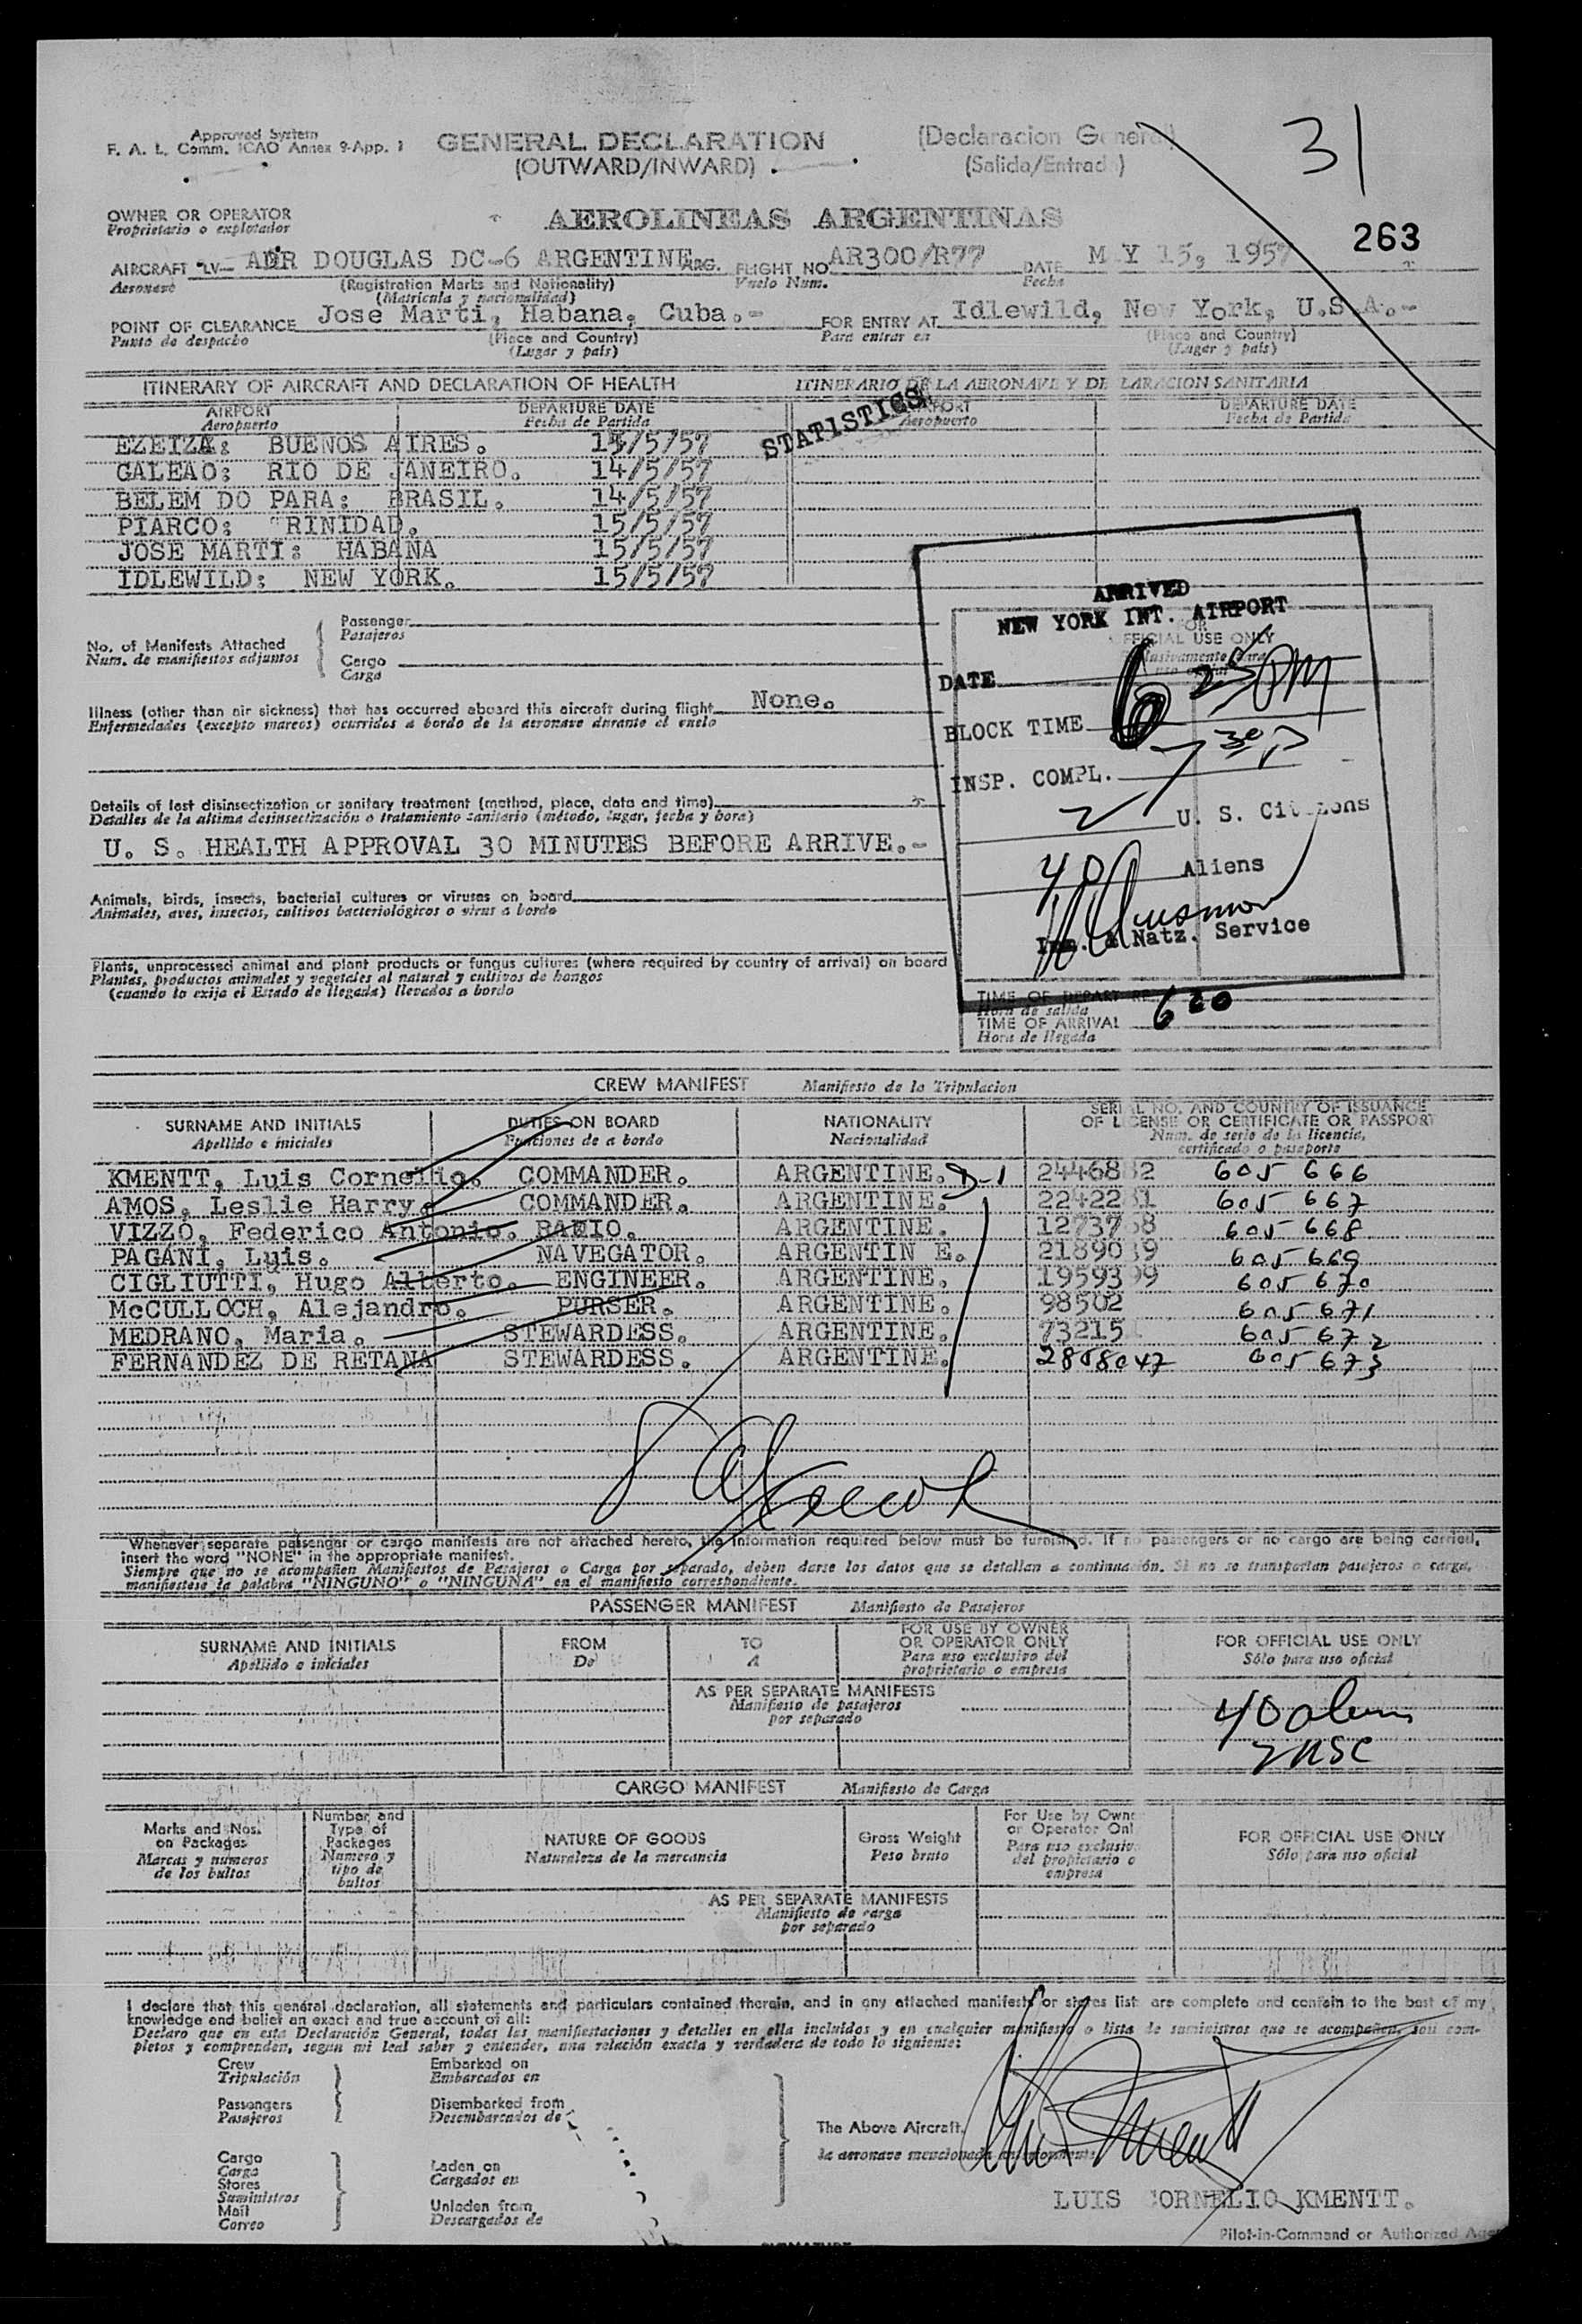 Approved System
F. A. L. Comm. ICAO Annex 9-App. 1
GENERAL DECLARATION
(OUTWARD/INWARD)
(Declaracion General)
(Salida/Entrada)
31
263
OWNER OR OPERATOR
Proprietario o explotador
AEROLINEAS ARGENTINAS
AIRCRAFT "LV— ADR DOUGLAS DC-6 ARGENTINE ARG. FLIGHT NO. AR300/R77 DATE M Y 15, 1957
Aeronave
(Registration Marks and Nationality)
Vuelo Num.
Fecha
(Matricula y nacionalidad)
POINT OF CLEARANCE Jose Marti, Habana, Cuba.- FOR ENTRY AT Idlewild, New York, U.S.A.-
Punto de despacho
(Place and Country)
Para entrar en
(Place and Country)
(Lugar y país)
(Lugar y país)
ITINERARY OF AIRCRAFT AND DECLARATION OF HEALTH
ITINERARIO DE LA AERONAVE Y DE LARACION SANITARIA
AIRPORT
Aeropuerto
DEPARTURE DATE
Fecha de Partida
Aeropuerto
DEPARTURE DATE
Fecha de Partida
STATISTICS
EZEIZA: BUENOS AIRES.
GALEAO: RIO DE JANEIRO. 14/5/57
BELEM DO PARA: BRASIL. 14/5/57
PIARCO: RINIDAD. 15/5/57
JOSE MARTI: HABANA 15/5/57
IDLEWILD: NEW YORK. 15/5/57
No. of Manifests Attached
Num. de manifiestos adjuntos
Passenger
Pasajeros
Cargo
Carga
Illness (other than air sickness) that has occurred aboard this aircraft during flight None.
Enfermedades (excepto mareos) ocurridas a bordo de la aeronave durante el vuelo
Details of last disinsectization or sanitary treatment (method, place, date and time)
Detalles de la altima desinsectización o tratamiento sanitario (método, lugar, fecha y hora)
U. S. HEALTH APPROVAL 30 MINUTES BEFORE ARRIVE.-
Animals, birds, insects, bacterial cultures or viruses on board
Animales, aves, insectos, cultivos bacteriológicos o virus a bordo
Plants, unprocessed animal and plant products or fungus cultures (where required by country of arrival) on board
Plantas, productos animales y vegetales al natural y cultivos de hongos
(cuando lo exija el Estado de llegada) llevados a bordo
ARRIVED
NEW YORK INT. AIRPORT
FOR
OFFICIAL USE ONLY
DATE
BLOCK TIME 6 25 PM
INSP. COMPL. 7 30 P
2 U. S. Citizens
40 Aliens
Imm. & Natz. Service
TIME OF DEPART RE
Hora de salida
TIME OF ARRIVAL 600
Hora de llegada
CREW MANIFEST Manifiesto de la Tripulacion
SURNAME AND INITIALS
Apellido e iniciales
DUTIES ON BOARD
Funciones de a bordo
NATIONALITY
Nacionalidad
SERIAL NO. AND COUNTRY OF ISSUANCE
OF LICENSE OR CERTIFICATE OR PASSPORT
Num. de serie de la licencia,
certificado o pasaporte
KMENTT, Luis Cornelio. COMMANDER. ARGENTINE. D-1 605 666
AMOS, Leslie Harry. COMMANDER. ARGENTINE. 605 667
VIZZO, Federico Antonio. RADIO. ARGENTINE. 605 668
PAGANI, Luis. NAVEGATOR. ARGENTIN E. 605 669
CIGLIUTTI, Hugo Alberto. ENGINEER. ARGENTINE. 605 670
McCULLOCH, Alejandro. PURSER. ARGENTINE. 98502 605 671
MEDRANO, Maria. STEWARDESS. ARGENTINE. 605 672
FERNANDEZ DE RETANA STEWARDESS. ARGENTINE. 2858047 605 673
Whenever separate passenger or cargo manifests are not attached hereto, the information required below must be furnished. If no passengers or no cargo are being carried,
insert the word "NONE" in the appropriate manifest.
Siempre que no se acompañen Manifiestos de Pasajeros o Carga por separado, deben darse los datos que se detallan a continuación. Si no se transportan pasajeros o carga,
manifiestese la palabra "NINGUNO" o "NINGUNA" en el manifiesto correspondiente.
PASSENGER MANIFEST Manifiesto de Pasajeros
SURNAME AND INITIALS
Apellido e iniciales
FROM
De
TO
A
FOR USE BY OWNER
OR OPERATOR ONLY
Para uso exclusivo del
proprietario o empresa
FOR OFFICIAL USE ONLY
Sólo para uso oficial
AS PER SEPARATE MANIFESTS
Manifiesto de pasajeros
por separado
40 aliens
2 USC
CARGO MANIFEST Manifiesto de Carga
Marks and Nos.
on Packages
Marcas y números
de los bultos
Number and
Type of
Packages
Numero y
tipo de
bultos
NATURE OF GOODS
Naturaleza de la mercancia
Gross Weight
Peso bruto
For Use by Owne
or Operator Onl
Para uso exclusivo
del propietario o
empresa
FOR OFFICIAL USE ONLY
Sólo para uso oficial
AS PER SEPARATE MANIFESTS
Manifiesto de carga
por separado
I declare that this general declaration, all statements and particulars contained therein, and in any attached manifests or stores list are complete and contain to the best of my
knowledge and belief an exact and true account of all:
Declaro que en esta Declaración General, todas las manifestaciones y detalles en ella incluidos y en cualquier manifiesto o lista de suministros que se acompañen, son com-
pletos y comprenden, segun mi leal saber y entender, una relación exacta y verdadera de todo lo siguiente:
Crew
Tripulación
Embarked on
Embarcados en
Passengers
Pasajeros
Disembarked from
Desembarcados de
The Above Aircraft.
la aeronave mencionada anteriormente
Cargo
Carga
Stores
Suministros
Mail
Correo
Laden on
Cargados en
Unladen from
Descargados de
LUIS CORNELIO KMENTT.
Pilot-in-Command or Authorized Agent